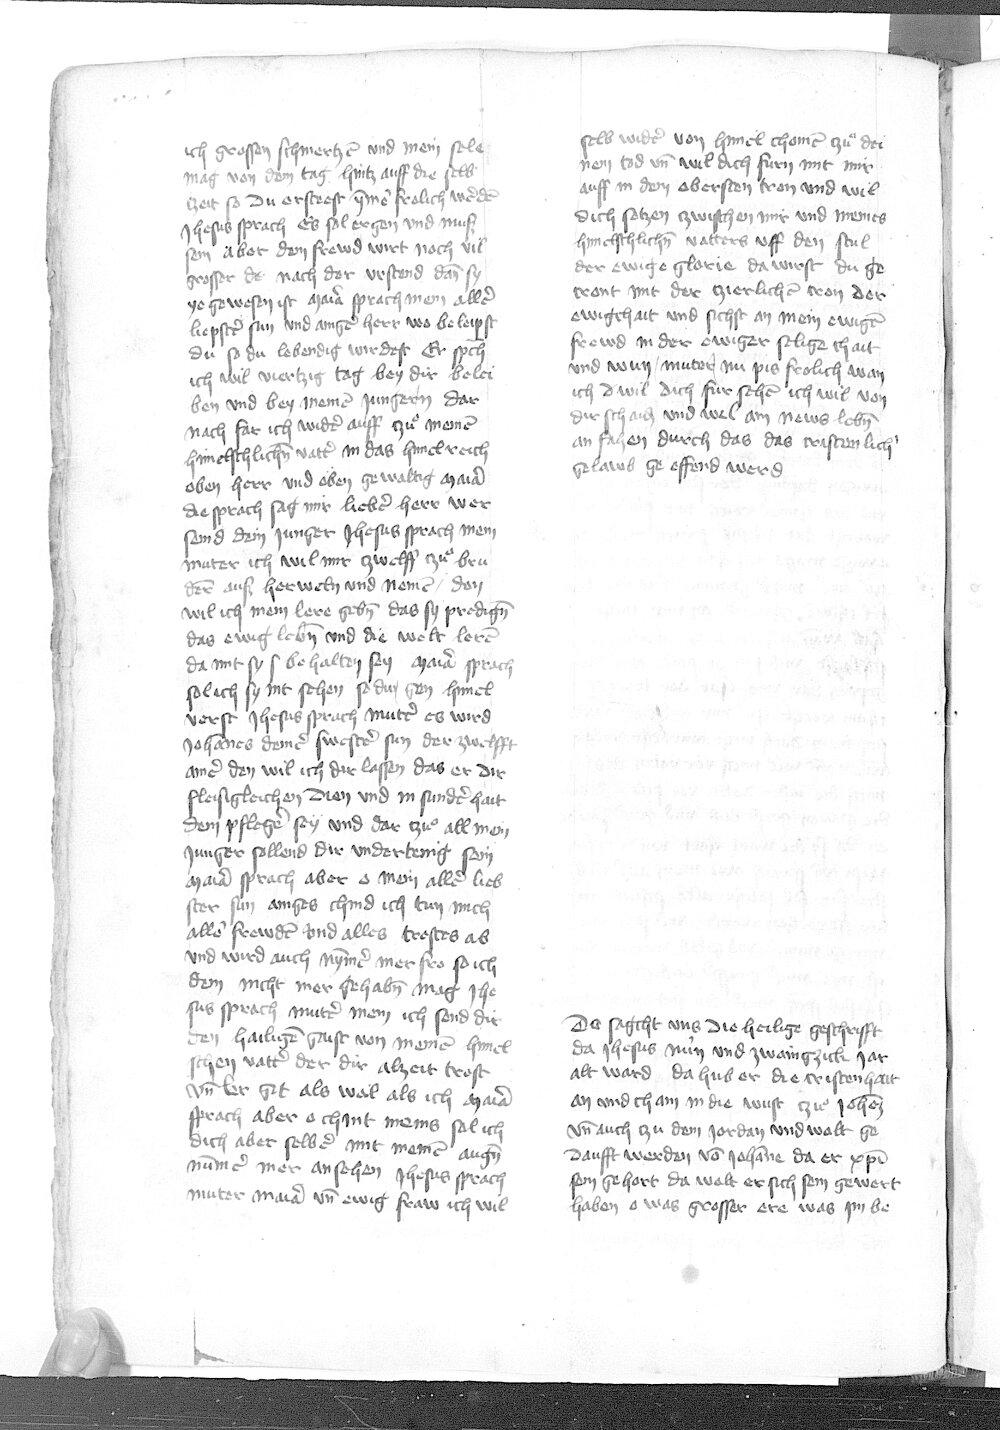 ich grossen schmertzē und mein sele
mag von dem tag hintz auff die selb
tzeit so Du ersteest ÿmē frolich wērdē
Jhesus sprach Es sol ergen und muß
sein aber dein frewd wirt noch vil
grosser de nach der urstend dañ sy
ye gewesen ist Mariā sprach mein allē
liepstē sun und aingē herr wo beleipst
du so du lebendig wirdest Er sprch
ich wil viertzig tag bey dir belei
ben und bey meinē Jungern dar
nach far ich widē auff tzů meinē
himelschlichn̄ vattē in das himelreich
eben herr und eben gewaltig Mariā
die sprach sag mir liebē herr wer
seind dein Junger Jhesus sprach mein
muter ich wil mir tzwelff tzů bru
dēr auß herweln und nemē / den
wil ich mein lere gebn̄ das sy predign̄
das ewig lebn̄ und die welt lerē
da mit sy s behalten sey Mariā sprach
sol ich sy nit sehen so du gen himel
verst Jhesus sprach mutē es wird
Johānes deinē swestē sun der zwelfft
ainē den wil ich dir lassen das er dir
fleisigleichen Dien und in sundē hait
dein pflegē sey und dar tzů all mein
Junger sollend dir undertenig sein
Mariā sprach aber o mein allē lieb
ster sun ainges chind ich tun mich
allē frewdē und alles trostes ab
und wird auch nȳmē mer fro so ich
dein nicht mer gehabn̄ mag Jhe
sus sprach mutē mein ich send dir
den hailigē gaist von meinē himel
schen vattē der dir alzeit trost
vn̄ ler git als wol als ich Mariā
sprach aber o chint meins sol ich
dich aber selbē mit meinē augn̄
nūmē mer ansehen Jhesus sprach
muter Mariā vn̄ ewig fraw ich wil
selb widē von himel chomē tzů dei
nem tod vn̄ wil dich furn mit mir
auff in den obersten tron und wil
dich setzen tzwischen mir und meines
himelschlichn̄ vatters uff den stul
der ewige glorie da wirst du ge
cront mit der tzierlichē cron der
ewigchait und sichst an mein ewigē
frewd in der ewiger selige chait
und wun / muter nu pis frolich wan
ich d wil dich fur sehē ich wil von
dir schaidn̄ und wel ain news lebn̄
an fahen durch das das cristenlich
gelawb ge effend werd
Do sagcht uns Die heilige geschrifft
da Jhesus nůn und zwaingzick Jar
alt ward da hub er die cristenhait
an und cham in die wust tzů Johēs
vn̄ auch tzu dem Jordan und wolt ge
daufft werden vō Johāne da er xpī
sein gehort da wolt er sich sein gewert
haben o was grosser ere was im be